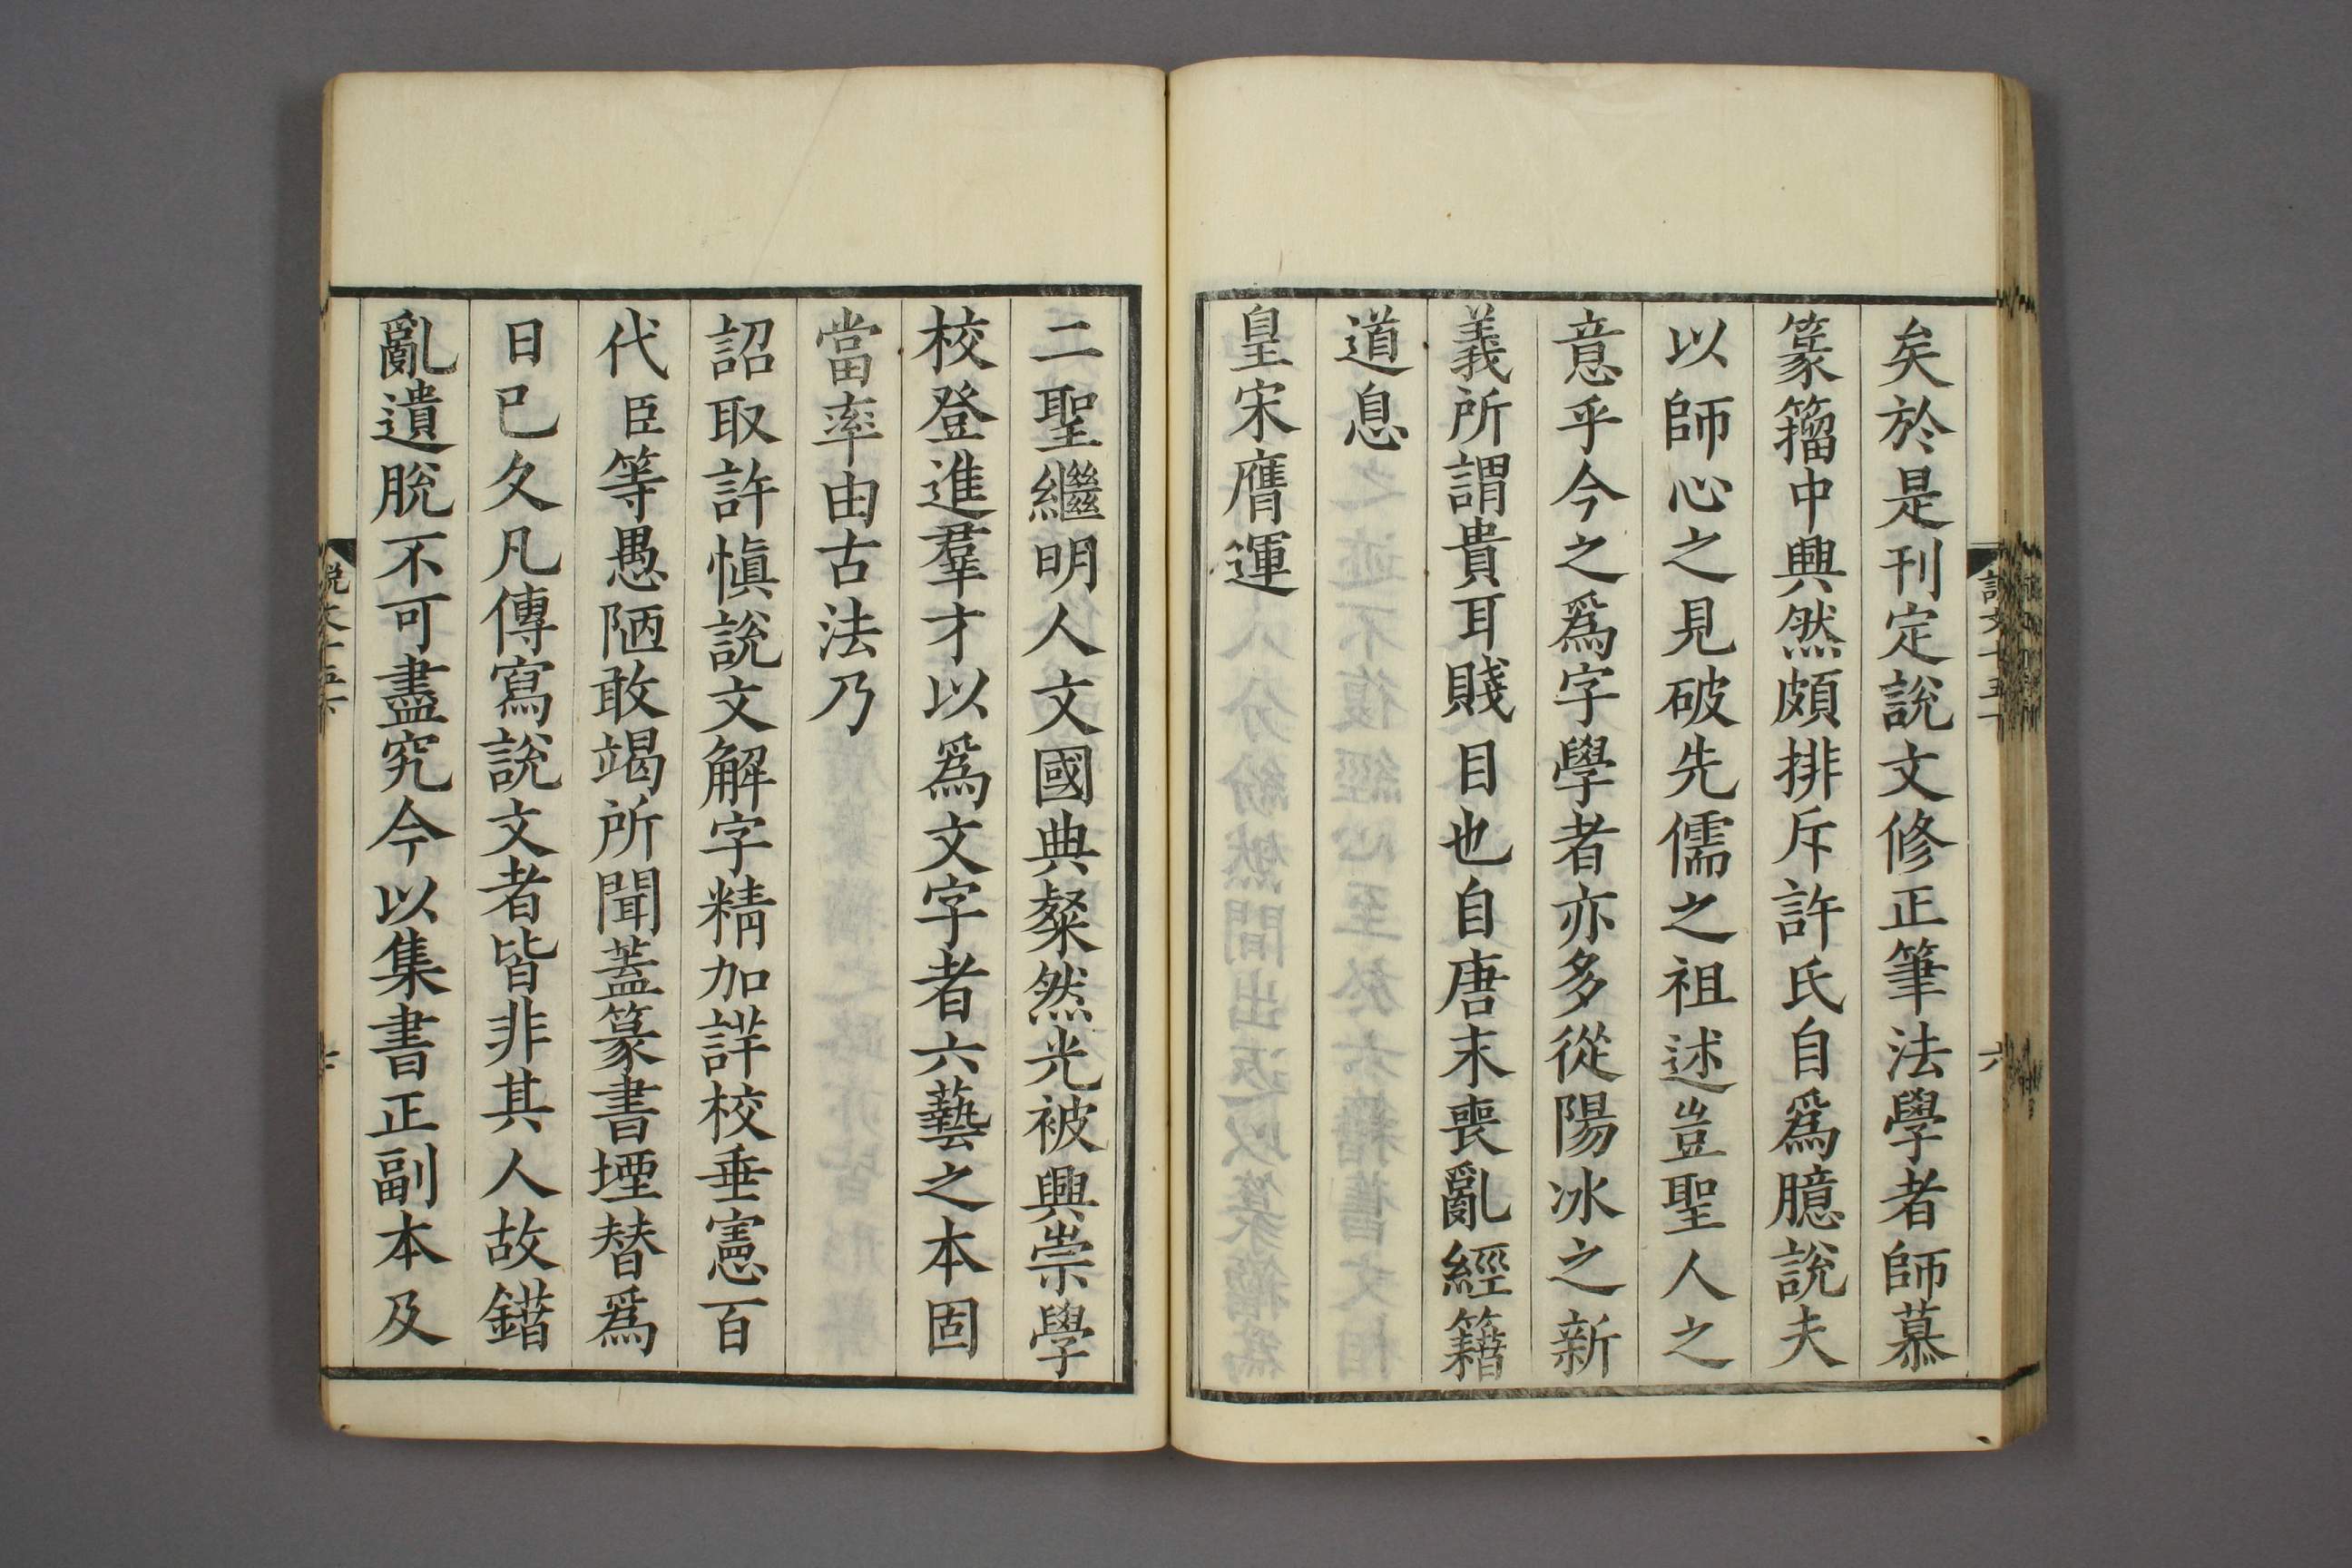 矣於是刊定說文修正筆法學者師慕
篆籀中興然頗排斥許氏自爲臆說夫
以師心之見破先儒之祖述豈聖人之
意乎今之爲字學者亦多從陽冰之新
義所謂貴耳賤目也自唐末喪亂經籍
道息
皇宋膺運
二聖繼明人文國典粲然光被興崇學
校登進羣才以爲文字者六藝之本固
當率由古法乃
詔取許愼說文解字精加詳校垂憲百
代臣等愚陋敢竭所聞蓋篆書堙替爲
日已久凡傳寫說文者皆非其人故錯
亂遺脫不可盡究今以集書正副本及